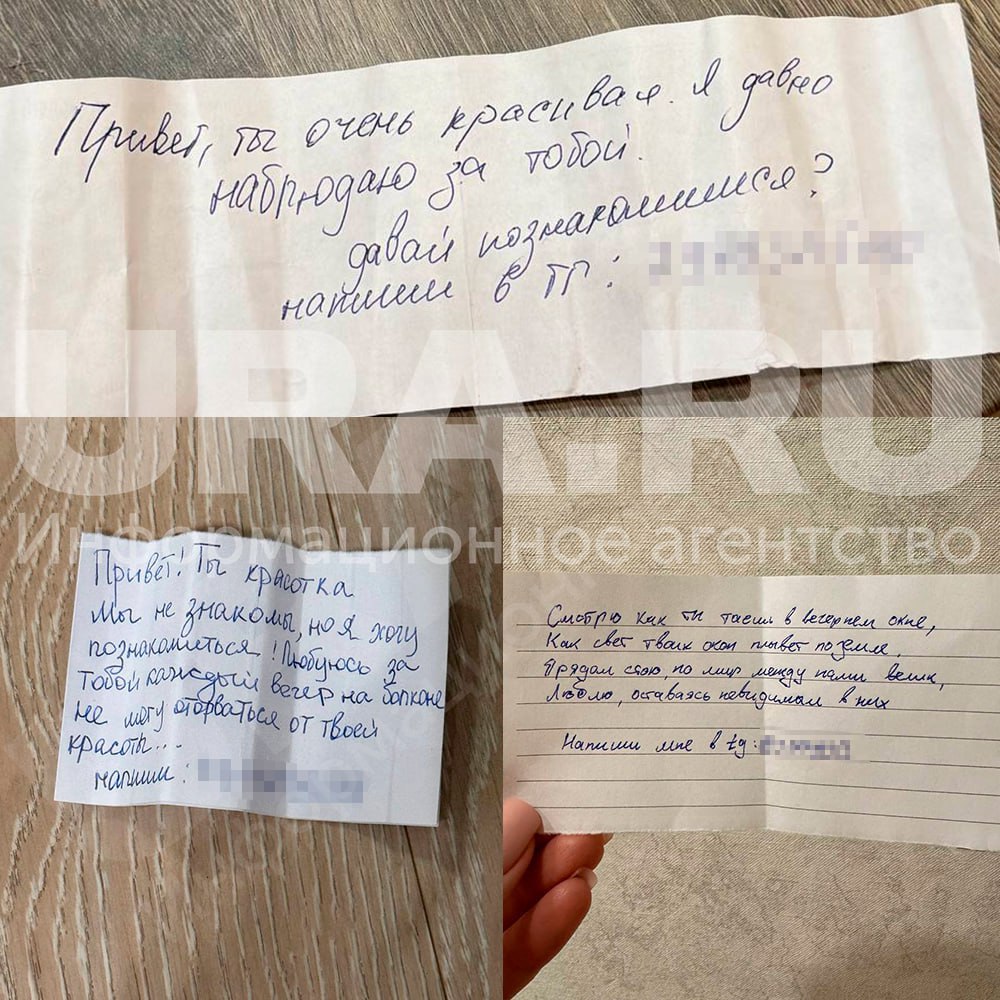 Привет, ты очень красивая. Я давно
наблюдаю за тобой.
давай познакомимся?
напиши в ТГ:
URA.RU
Информационное агентство
Привет! Ты красотка
Мы не знакомы, но я хочу
познакомиться! Любуюсь за
тобой каждый вечер на балконе
не могу оторваться от твоей
красоты...
напиши:
Смотрю как ты таешь в вечернем окне,
Как свет твоих окон плывет по земле,
Я рядом стою, но мир между нами велик,
Люблю, оставаясь невидимым в них
Напиши мне в tg: